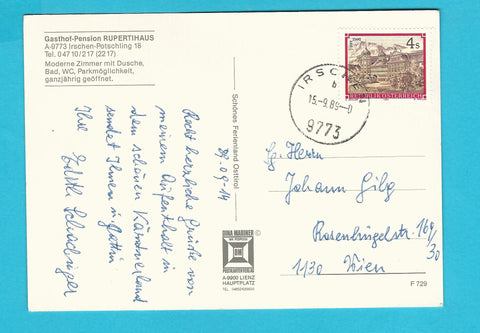 Gasthof-Pension RUPERTIHAUS
A-9773 Irschen-Potschling 18
Tel. 04710/217 (2217).
Moderne Zimmer mit Dusche,
Bad, WC, Parkmöglichkeit,
ganzjährig geöffnet.
89.09.14
Recht herzliche Grüße von
meinem Aufenthalt in
dem schönen Kärntnerland
sendet Ihnen u. Gattin
Ihre Edith
Schönes Ferienland Osttirol
DINA MARINER
A-9900 LIENZ
HAUPTPLATZ
4 S
REPUBLIK ÖSTERREICH
IRSCHEN
b
15.-9.89-0
9773
Hr. Herrn
Johann Gilg
Rosenhügelstr. 169/30
1130 Wien
F 729